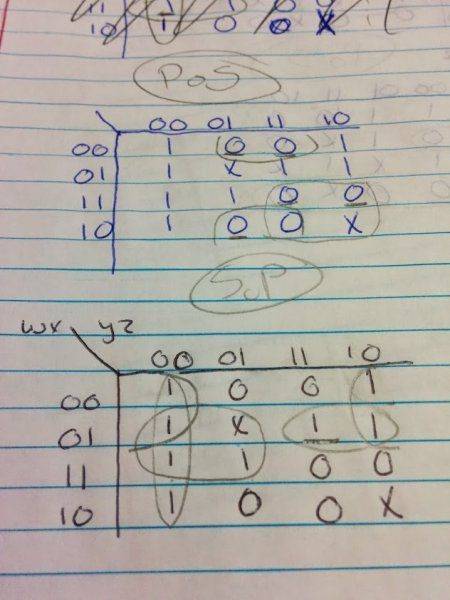 10 1 0 0 X
PoS
00 01 11 10
00 1 0 0 1
01 1 X 1 1
11 1 1 0 0
10 1 0 0 X
SoP
wx yz
00 01 11 10
00 1 0 0 1
01 1 X 1 1
11 1 1 0 0
10 1 0 0 X